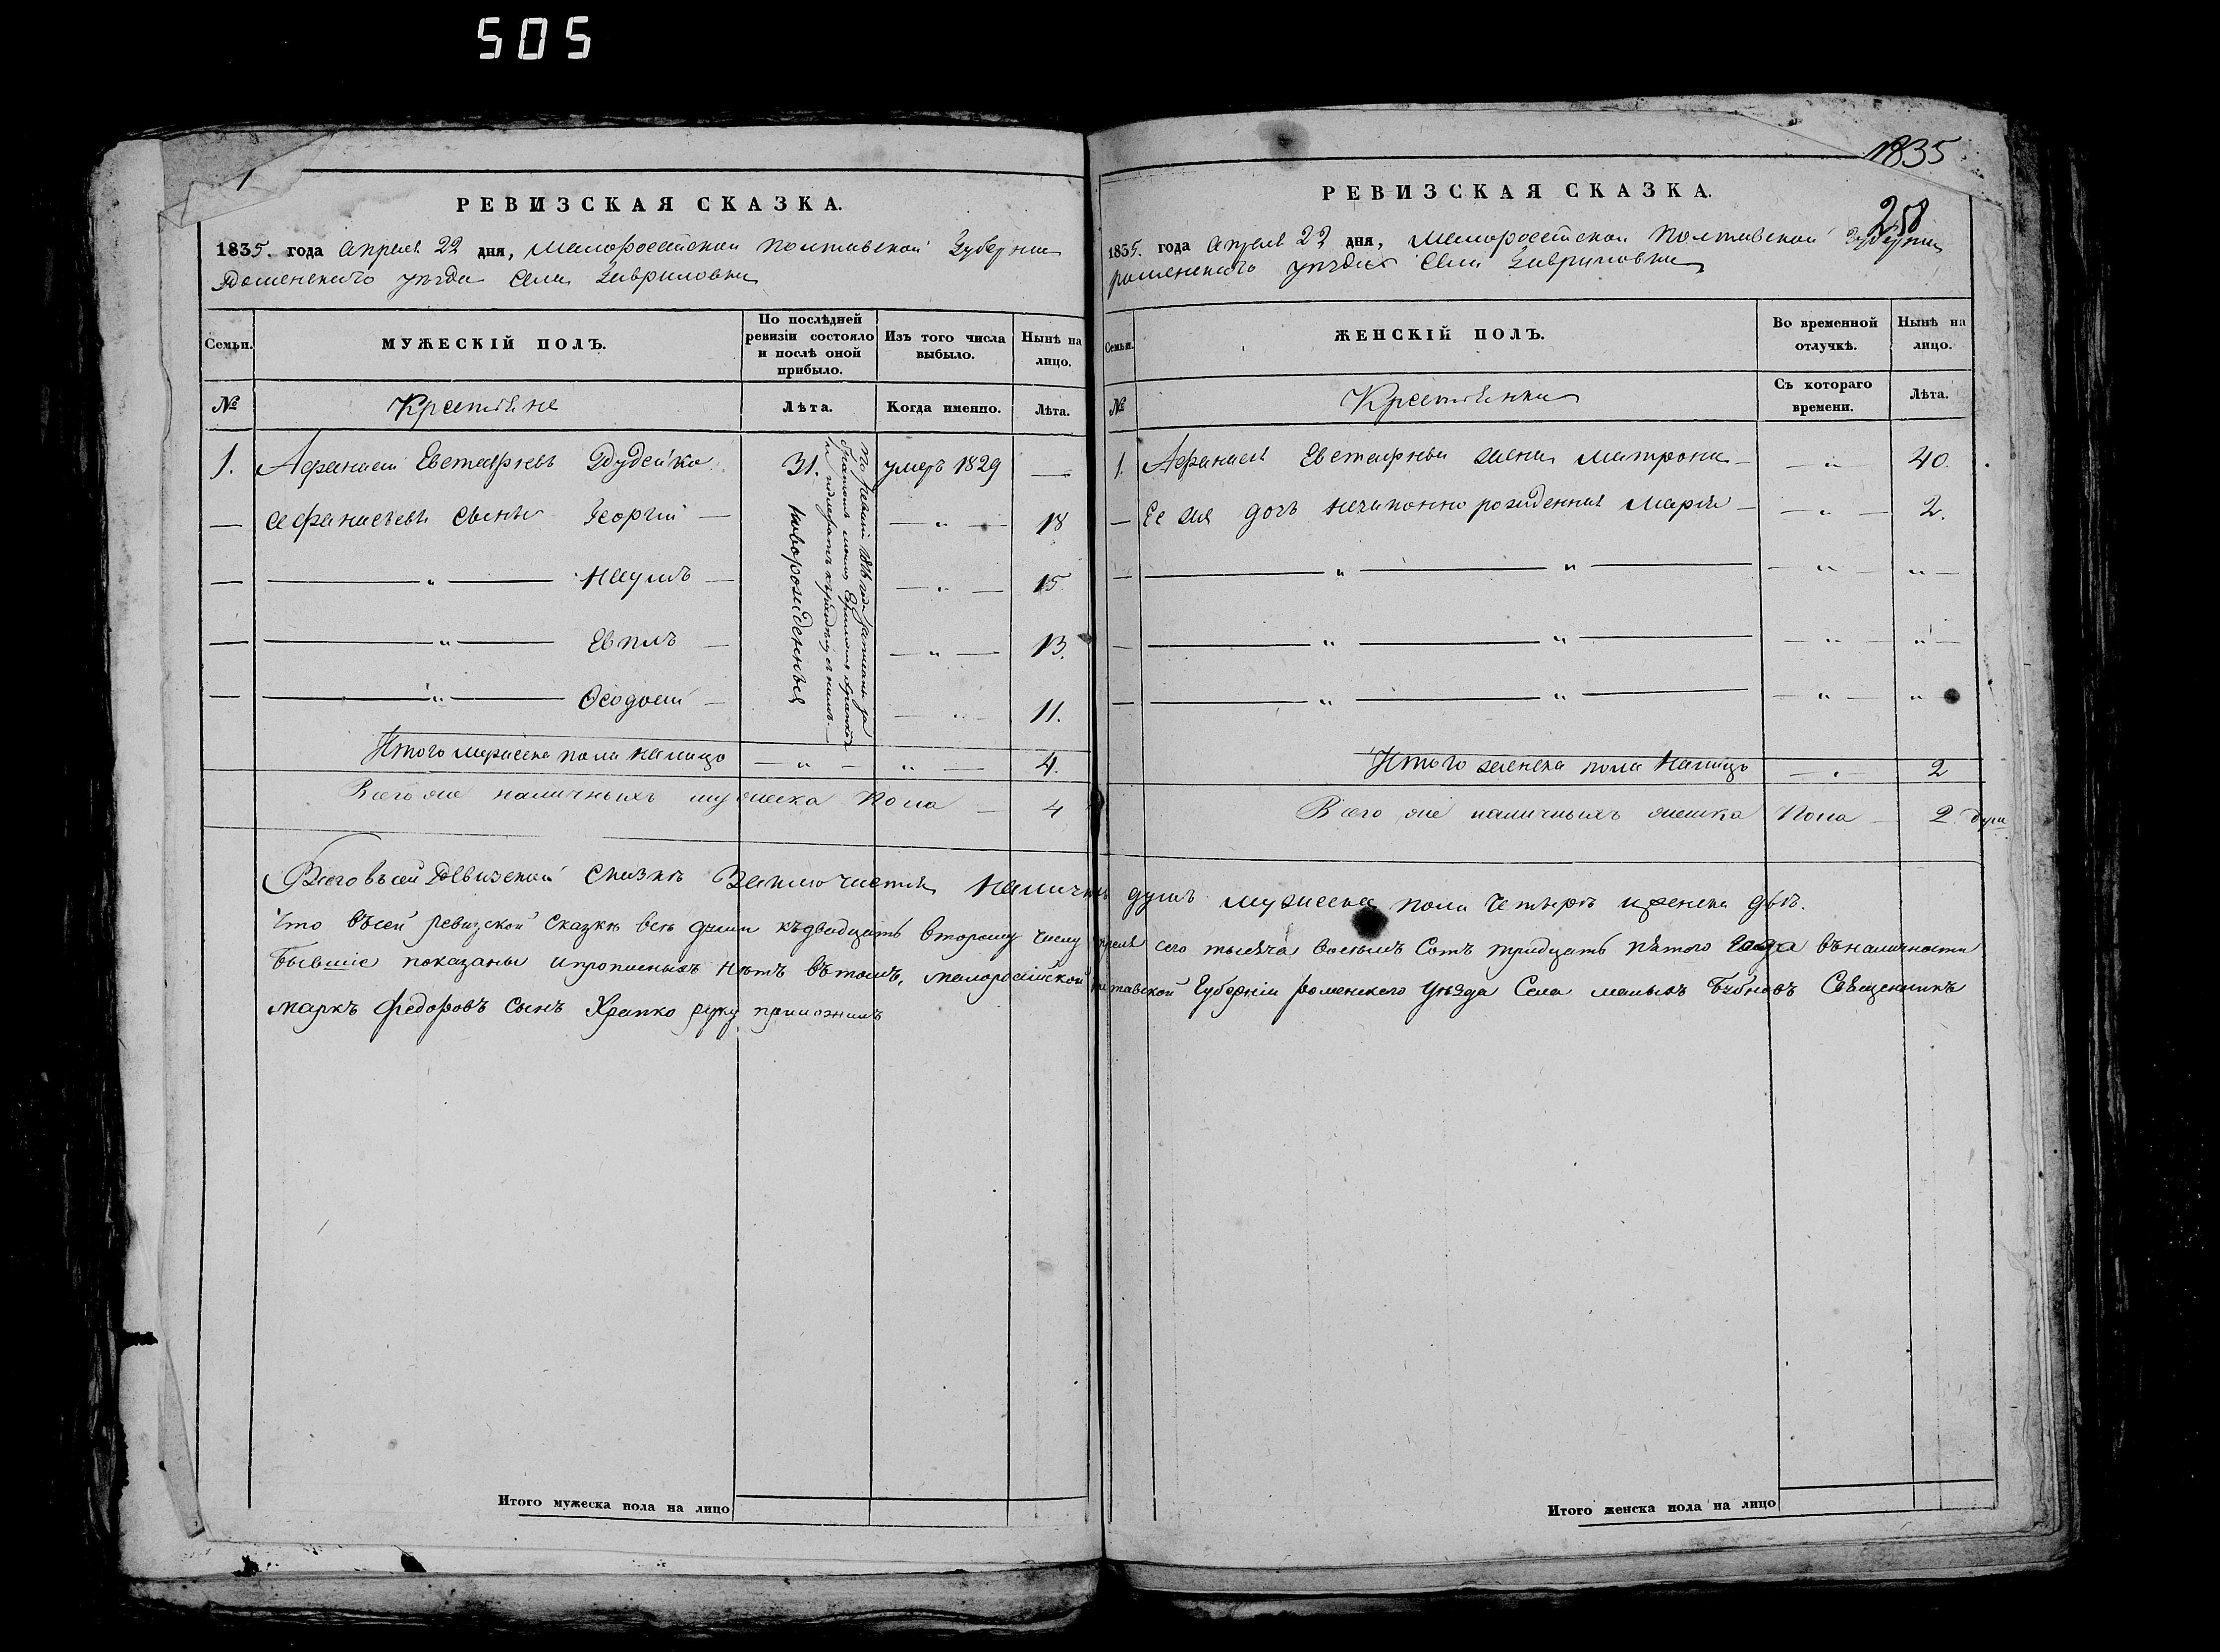 505
РЕВИЗСКАЯ СКАЗКА.
1835. года Апреля 22 дня, Малоросийской Полтавской Губернии
Роменского уезда Села Гавриловки
Семьи.
МУЖЕСКІЙ ПОЛЪ.
По послѣдней ревизіи состояло и послѣ оной прибыло.
Изъ того числа выбыло.
Нынѣ на лицо.
№
Крестьяне
Лѣта.
Когда именно.
Лѣта.
1. Афанасий Евстафиевъ Дудейко 31. умеръ 1829 —
— Афанасиевы сыны Георгий — — „ — 18
— — „ — Наумъ — — „ — 15
— — „ — Евплъ — — „ — 13.
— — „ — Феодосий — — „ — 11.
новорожденные
По ревизии 1816 года
братомъ моимъ
Итого мужеска пола налицо — „ — „ — 4.
Всего же наличныхъ мужеска пола — 4
1835
258
РЕВИЗСКАЯ СКАЗКА.
1835. года Апреля 22 дня, Малоросийской Полтавской Губернии
роменского уезда Села Гавриловки
Семьи.
ЖЕНСКІЙ ПОЛЪ.
Во временной отлучкѣ.
Нынѣ на лицо.
№
Крестьянки
Съ котораго времени.
Лѣта.
1. Афанасия Евстафиева жена Матрона — — „ — 40.
— Ее же дочь незаконно рожденная Мария — — „ — 2.
— — „ — „ — — „ — „ —
— — „ — „ — — „ — „ —
— — „ — „ — — „ — „
Итого женска пола налицо — „ — 2
Всего же наличныхъ женска пола — 2 душ
Всего въ сей Ревизской Сказкѣ Заключается наличныхъ душъ мужеска пола четыре и женска двѣ.
Что въ сей ревизской сказкѣ всѣ души къ двадцать второму числу апреля сего тысяча восемь Сотъ тридцать пятого Года въ наличности
Бывшіе показаны и прописныхъ нѣтъ въ томъ, малоросійской Полтавской Губерніи роменского Уѣзда Села малыхъ Бубновъ Священникъ
Маркъ Федоровъ Сынъ Храпко руку приложилъ
Итого мужеска пола на лицо
Итого женска пола на лицо